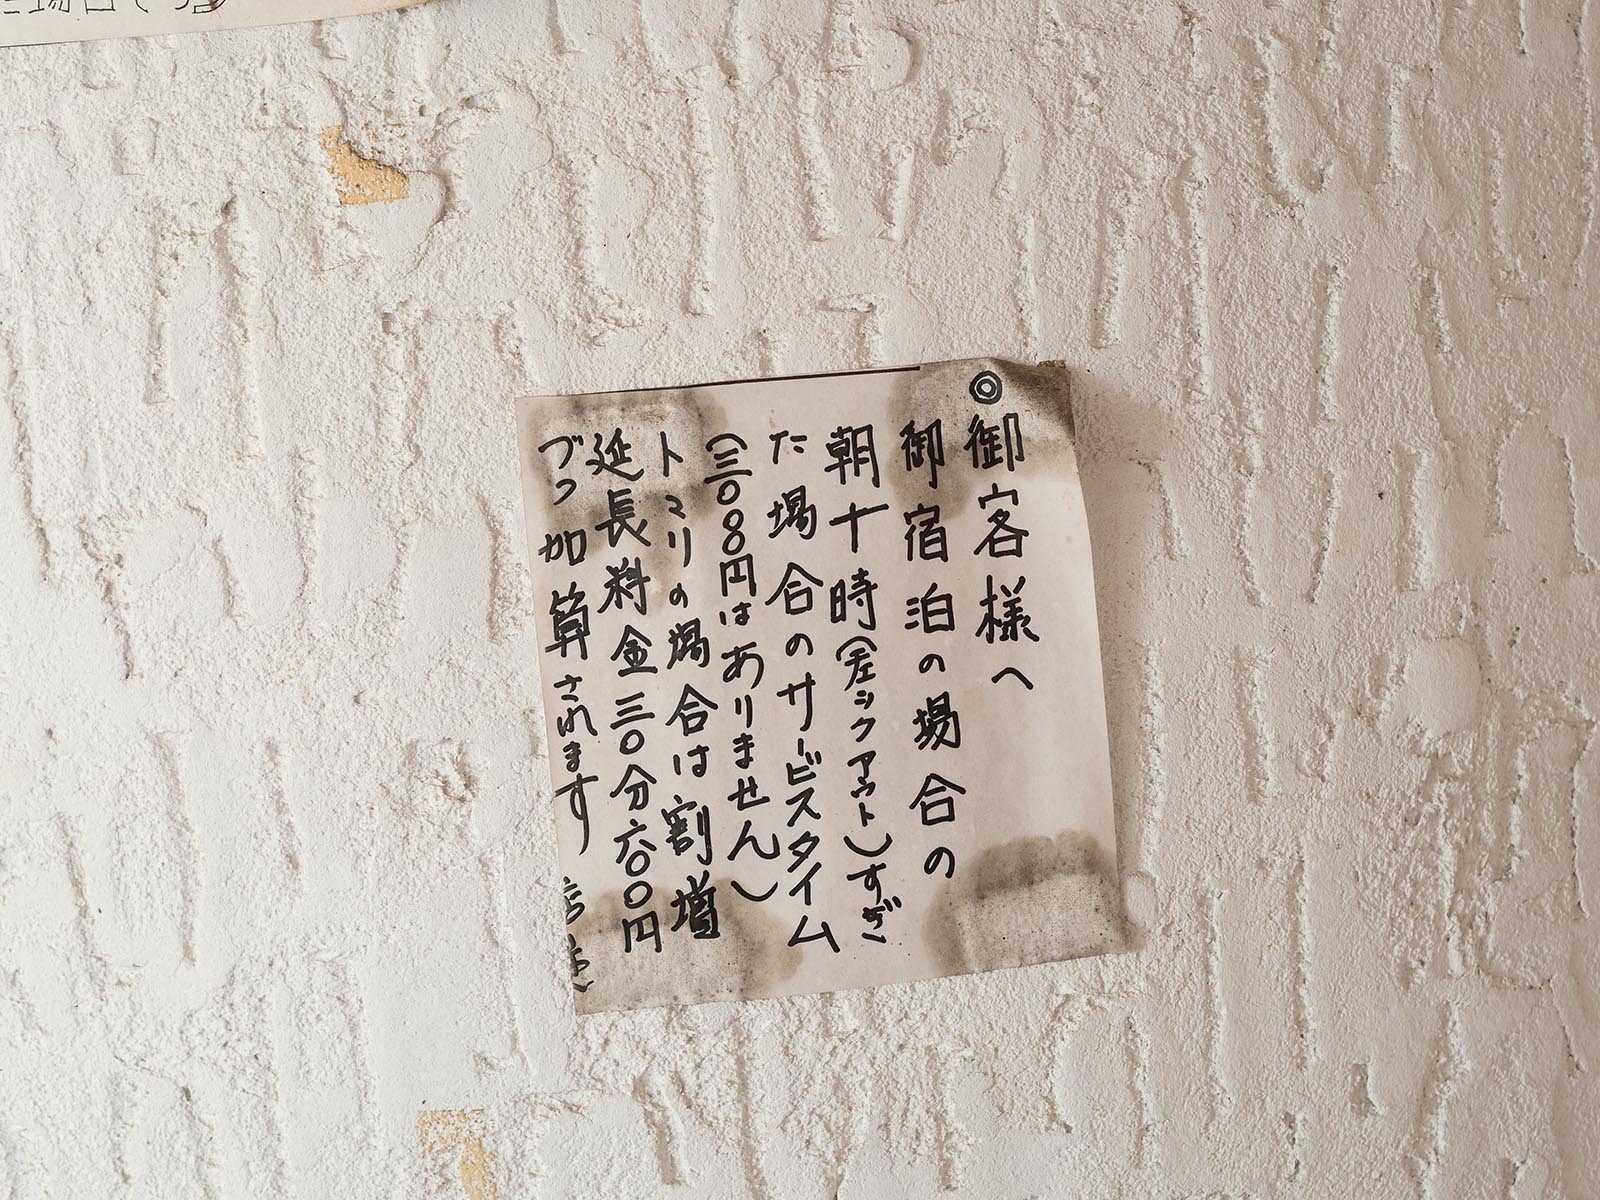 ◎御客様へ
御宿泊の場合の
朝十時(チェックアウト)すぎ
た場合のサービスタイム
(三〇〇〇円はありません)
トマリの場合は割増
延長料金三〇分六〇〇円
づつ加算されます 店主